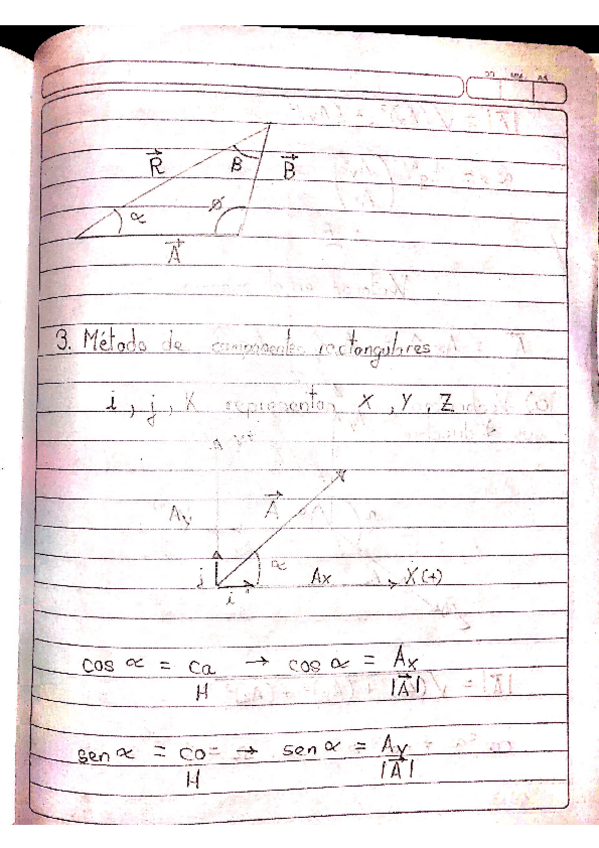 DD MM AA
R⃗ B B⃗
α ø
A⃗
3. Método de componentes rectangulares
i, j, K representan X, Y, Z
Y+
Ay A⃗
j α Ax X(+)
i
cos α = ca/H → cos α = Ax/|A⃗|
sen α = co/H → sen α = Ay/|A⃗|